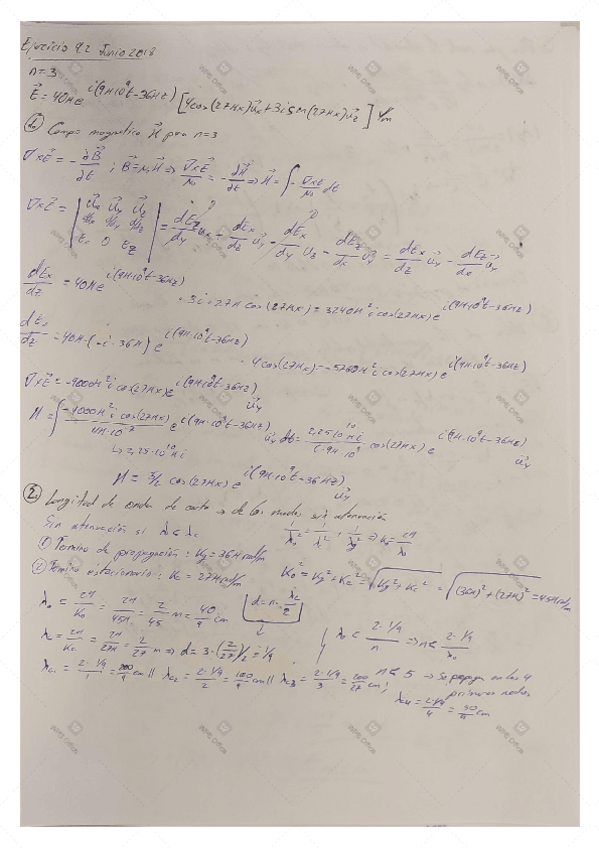 Ejercicio 9.2 Junio 2018
n=3
E⃗ = 40π e^{i(9π·10⁹t-36πz)} [4cos(27πx)u⃗x + 3i sen(27πx)u⃗z] V/m
1. Campo magnetico H⃗ para n=3
∇xE⃗ = -∂B⃗/∂t ; B⃗=μ₀H⃗ => ∇xE⃗/μ₀ = -∂H⃗/∂t => H⃗ = ∫ -∇xE/μ₀ dt
∇xE⃗ = | u⃗x u⃗y u⃗z ; Ex 0 Ez | = dEz/dy ux - dEx/dz u⃗y - dEx/dy uz - dEz/dx u⃗y = dEx/dz u⃗y - dEz/dx u⃗y
dEx/dz = 40π e^{i(9π·10⁹t-36πz)} · 3i·27π cos(27πx) = 3240π² i cos(27πx) e^{i(9π·10⁹t-36πz)}
dEx/dz = 40π·(-i·36π) e^{i(9π·10⁹t-36πz)} · 4cos(27πx) = -5760π² i cos(27πx) e^{i(9π·10⁹t-36πz)}
∇xE = -9000π² i cos(27πx) e^{i(9π·10⁹t-36πz)} u⃗y
H = ∫ -9000π² i cos(27πx)/4π·10⁻⁷ e^{i(9π·10⁹t-36πz)} u⃗y dt = 2,25·10¹⁰πi/i·9π·10⁹ cos(27πx) e^{i(9π·10⁹t-36πz)} u⃗y
↳ 2,25·10¹⁰πi
H = 5/2 cos(27πx) e^{i(9π·10⁹t-36πz)} u⃗y
2. Longitud de onda de corte → de los modos sin atenuación
Sin atenuación si λ₀ < λc
1/λ₀² = 1/λc² + 1/λg² => K₀ = 2π/λ₀
① Termino de propagación : Kg = 36π rad/m
② Termino estacionario : Kc = 27π rad/m
K₀² = Kg² + Kc² = √(Kg² + Kc²) = √((36π)² + (27π)²) = 45π rad/m
λ₀ = 2π/K₀ = 2π/45π = 2/45 m = 40/9 cm
d = n·λc/2
λc = 2π/Kc = 2π/27π = 2/27 m => d = 3·(2/27)/2 = 1/9
λ₀ < 2·1/9/n => n < 2·1/9/λ₀
n < 5 → se propagan los 4 primeros modos
λc1 = 2·1/9/1 = 200/9 cm || λc2 = 2·1/9/2 = 100/9 cm || λc3 = 2·1/9/3 = 200/27 cm ;
λc4 = 2·1/9/4 = 50/9 cm
WPS Office